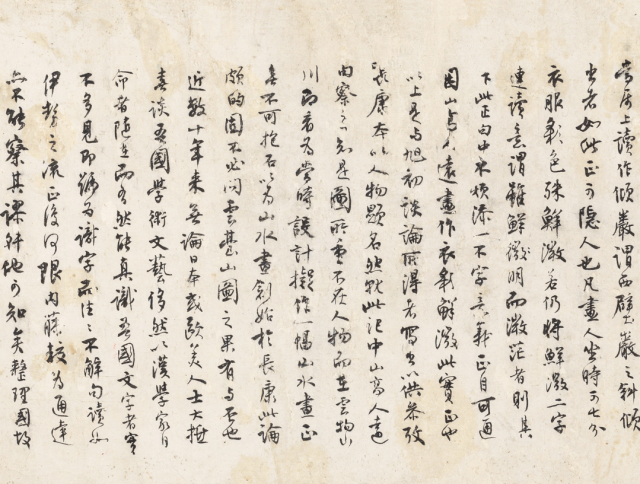 當屬上讀作傾巖謂西壁巖之斜傾
出者如此正可隱人也凡畫人坐時可七分
衣服彩色殊鮮微若仍將鮮微二字
連讀意謂雖鮮微明而微茫者則其
下此正內中不煩添一不字文義正自可通
因山高人遠畫作衣彩鮮微此實正也
以上是與旭初談論所得者寫出以供參攷
長康本以人物題名然就此記中山高人遠
內察之知是圖所重不在人物而在雲物山
川而看為當時設計擬作一幅山水畫正
無不可抱石以為山水畫創始於長康此論
頗的固不必問雲臺山圖之果有與否也
近數十年來無論日本或歐美人士大抵
喜談吾國學術文藝侈然以漢學家自
命者隨在而有然能真識吾國文字者實
不多見即號為識字而往〻不解句讀如
伊勢之流正復何限內藤較為通達
亦不能察其謬斜他可知矣整理國故